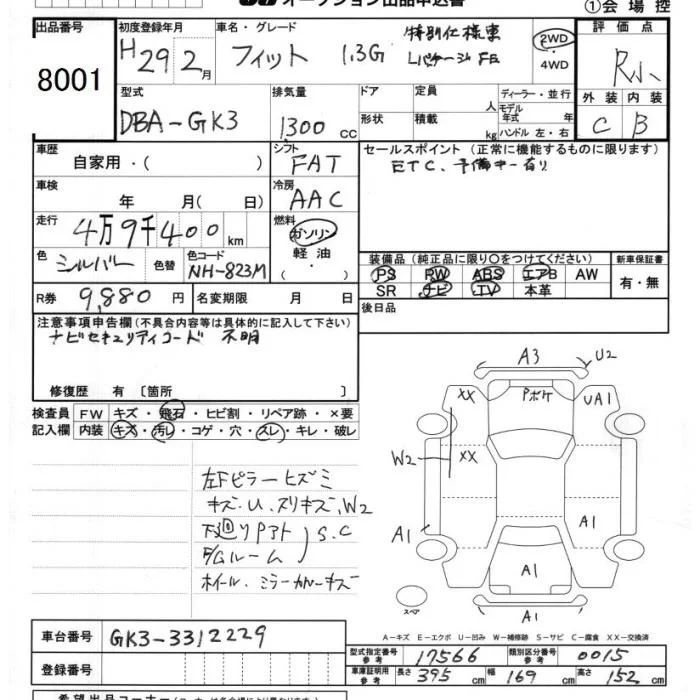 オークション出品申込書 ①会場控
出品番号 8001
初度登録年月 H29 2月
車名・グレード フィット 1.3G 特別仕様車 Lパッケージ FE
2WD
・
4WD
評価点 R小
外装 C 内装 B
型式 DBA-GK3
排気量 1300 CC
ドア 形状
定員 人
積載 kg
ディーラー・並行
モデル年式 年
ハンドル 左・右
車歴 自家用・( )
シフト FAT
セールスポイント (正常に機能するものに限ります)
ETC、予備キー有り
車検 年 月( 日)
冷房 AAC
走行 4万9千400 km
燃料 ガソリン
軽油
( ・ )
色 シルバー 色替 色コード NH-823M
装備品 (純正品に限り○をつけてください) 新車保証書
PS PW ABS エアB AW 有・無
SR ナビ TV 本革
R券 9,880 円 名変期限 月 日
後日品
注意事項申告欄 (不具合内容等は具体的に記入して下さい)
ナビセキュリティコード 不明
修復歴 有 〔箇所 〕
検査員 FW キズ・飛石・ヒビ割・リペア跡・×要
記入欄 内装 キズ・汚レ・コゲ・穴・スレ・キレ・破レ
左Fピラーヒズミ
キズ・U、スリキズ、W2
下廻りPアト S.C
E/Gルーム
ホイール、ミラーカバーキズ
A3 U2
XX Pボケ UA1
W2 XX
A1 A1
A1
スペア A1
A-キズ E-エクボ U-凹み W-補修跡 S-サビ C-腐食 XX-交換済
車台番号 GK3-3312229
登録番号
型式指定番号 参考 17566 類別区分番号 参考 0015
車庫証明用 参考 長さ 395 cm 幅 169 cm 高さ 152 cm
希望出品コーナー